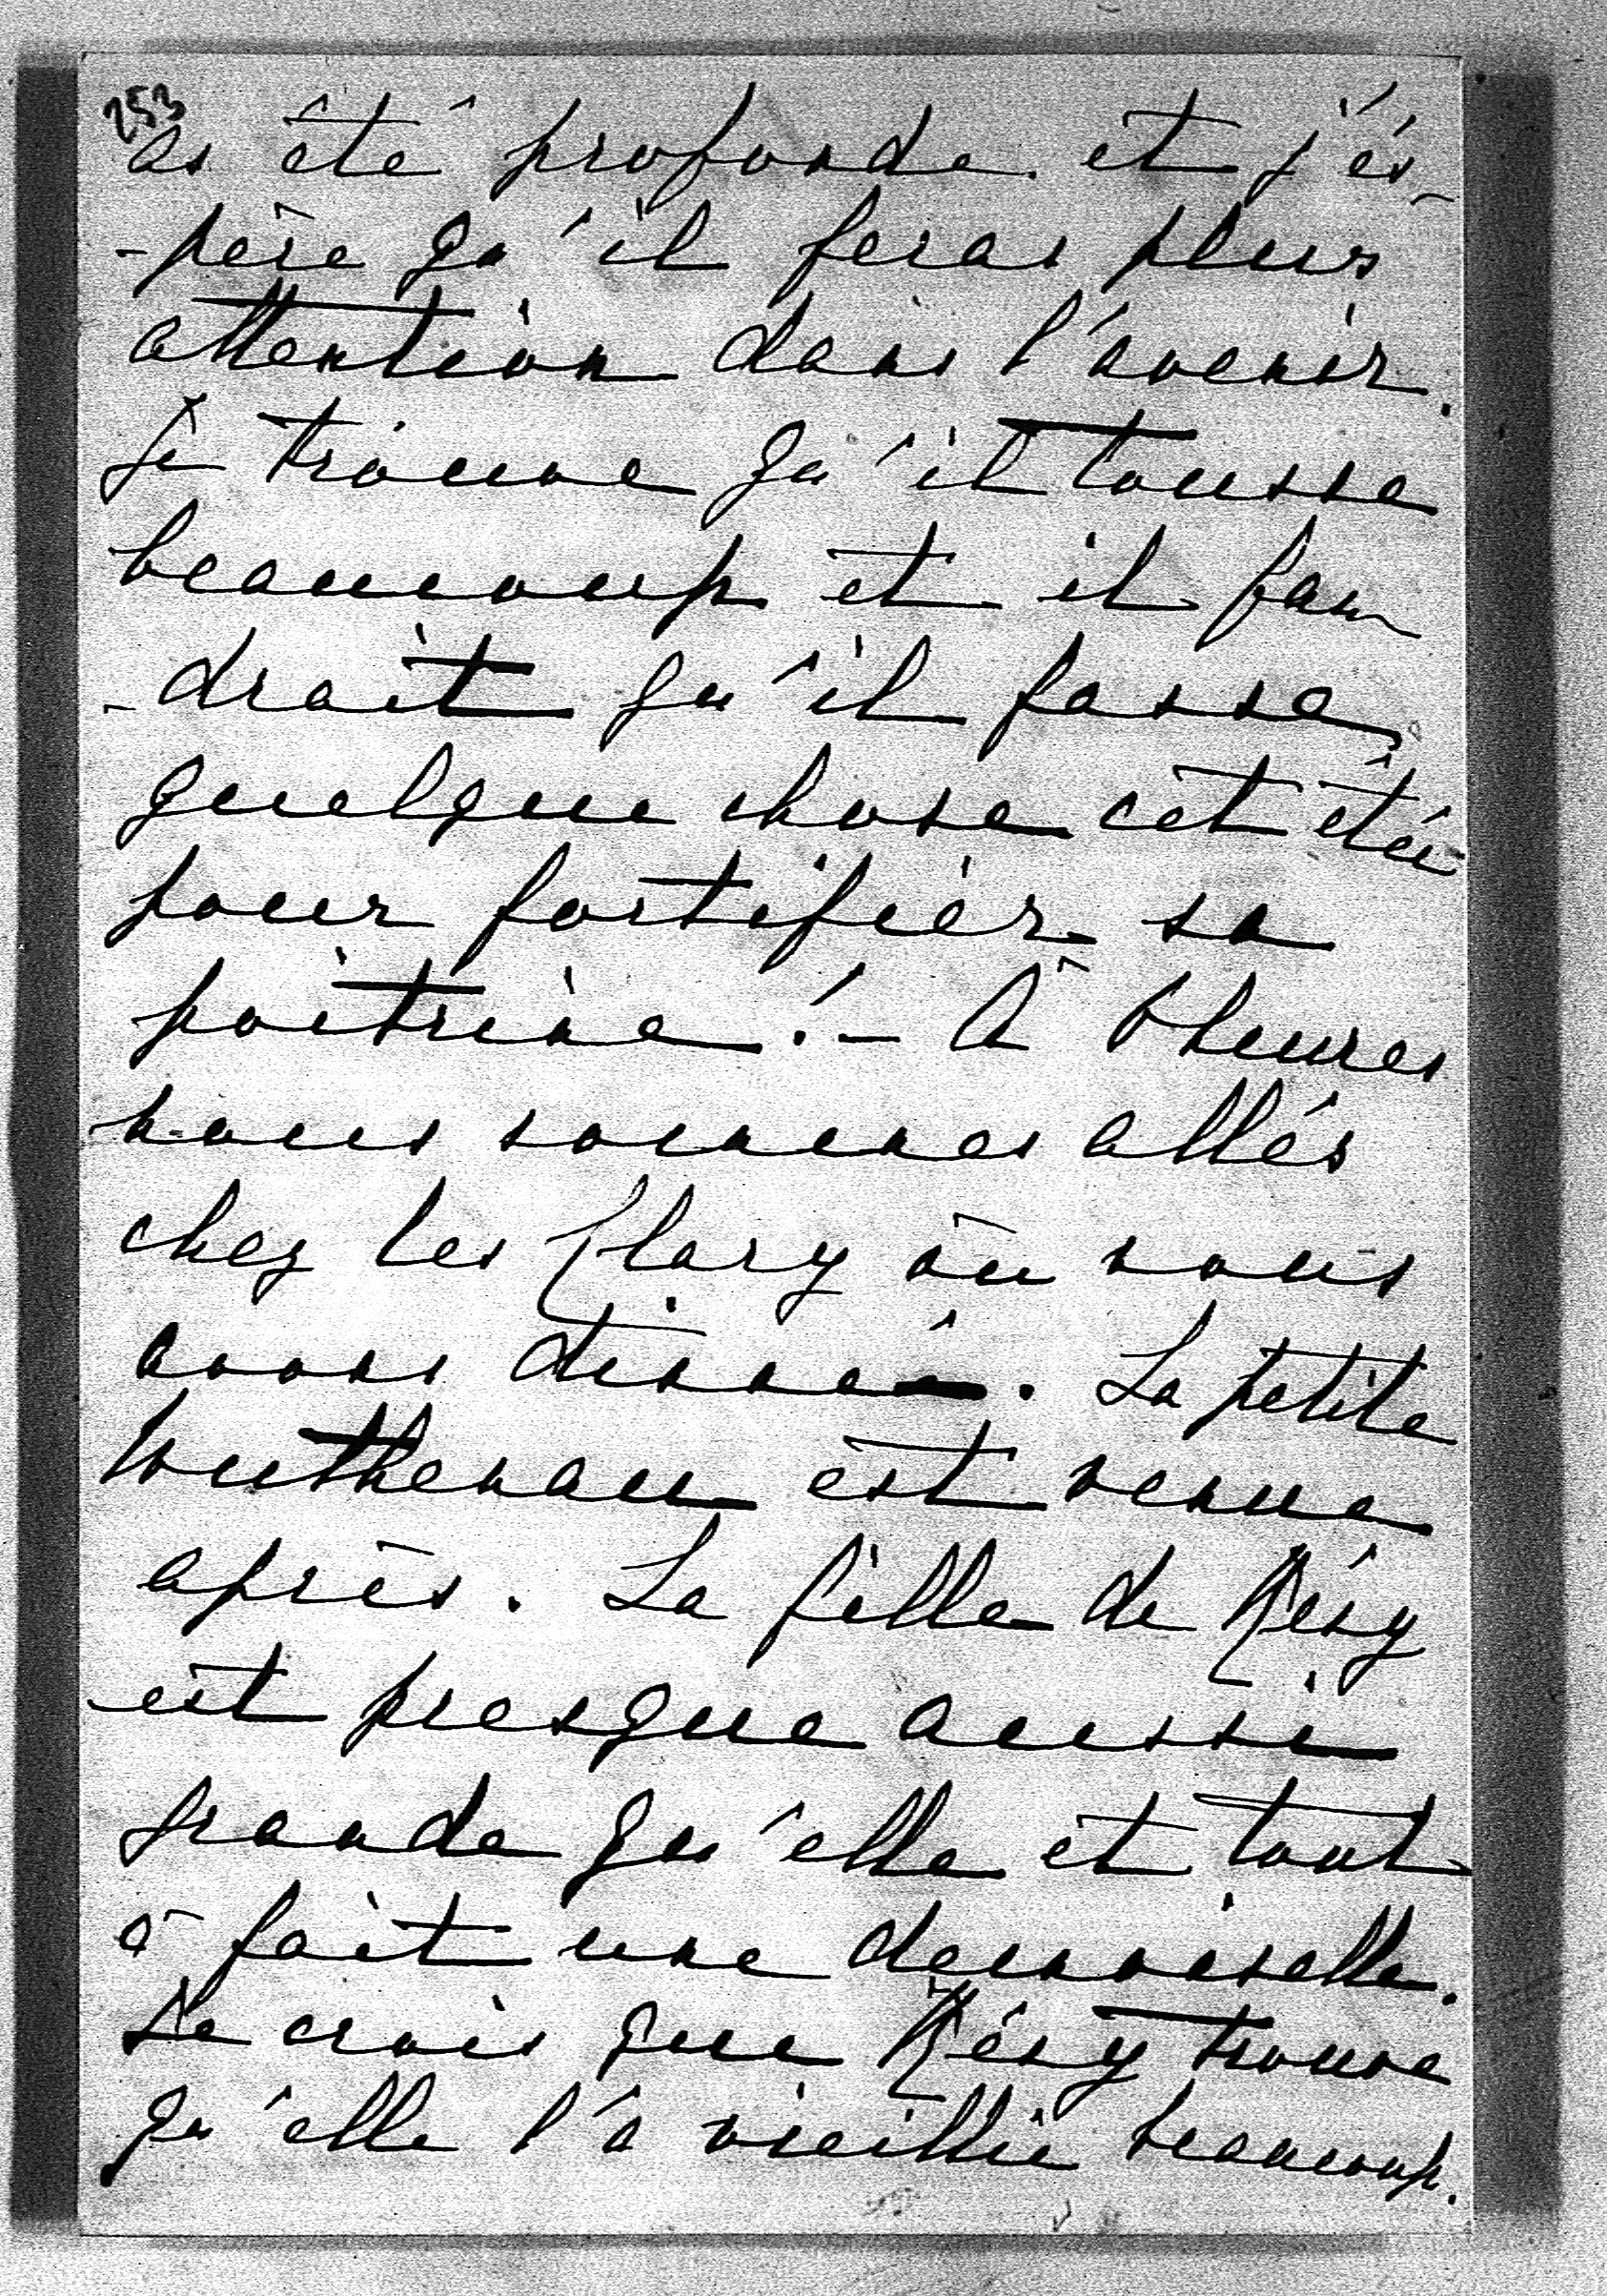 253
as été profonde et j'és-
-père qu'il feras plus
attention dans l'avenir.
Je trouve qu'il tousse
beaucoup et il fau
-drait qu'il fasse
quelque chose cet été
pour fortifier sa
poitrine! - À heures
nous sommes allés
chez les Flary où nous
avons dinné. La petite
Wuthenau est venue
après. La fille de Résy
est presque aussi
grande qu'elle et tout
à fait une demoiselle.
Je crois que Résy trouve
qu'elle l'a vieillie beaucoup.